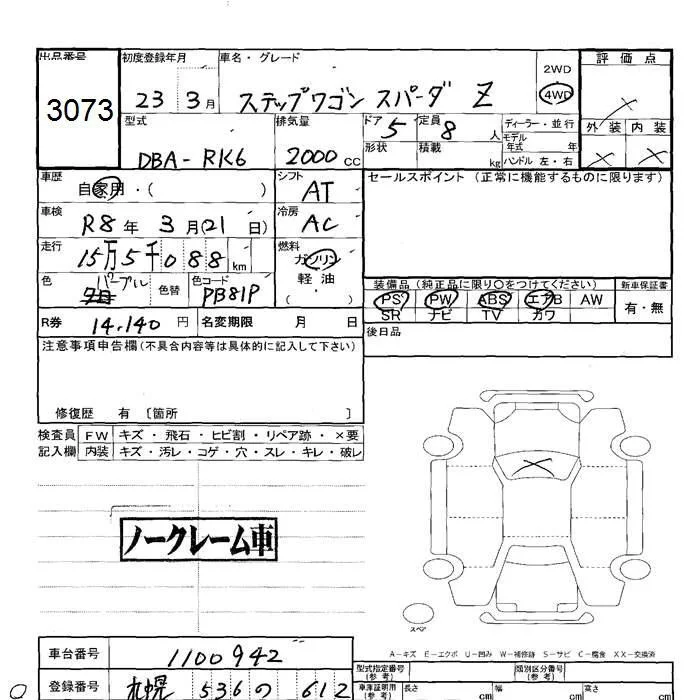 出品番号 初度登録年月 車名・グレード 評価点
3073 23 3月 ステップワゴン スパーダ Z 2WD 4WD
型式 排気量 ドア 5 定員 8人 ディーラー・並行 外装 内装
DBA-RK6 2000cc 形状 積載 kg モデル年式 年
ハンドル 左・右
車歴 自家用・( ) シフト AT セールスポイント (正常に機能するものに限ります)
車検 R8年 3月(21日) 冷房 AC
走行 15万5千088km 燃料 ガソリン
色 パープル 色替 色コード PB81P 軽油 ( ・ )
装備品 (純正品に限り○をつけてください) 新車保証書
PS PW ABS エアB AW 有・無
SR ナビ TV カワ
R券 14,140円 名変期限 月 日 後日品
注意事項申告欄(不具合内容等は具体的に記入して下さい)
修復歴 有 〔箇所 〕
検査員 FW キズ・飛石・ヒビ割・リペア跡・×要
記入欄 内装 キズ・汚レ・コゲ・穴・スレ・キレ・破レ
ノークレーム車
スペア
A-キズ E-エクボ U-凹み W-補修跡 S-サビ C-腐食 XX-交換済
車台番号 1100942 型式指定番号(参考) 類別区分番号(参考)
登録番号 札幌 536 の 612 車庫証明用(参考) 長さ cm 幅 cm 高さ cm